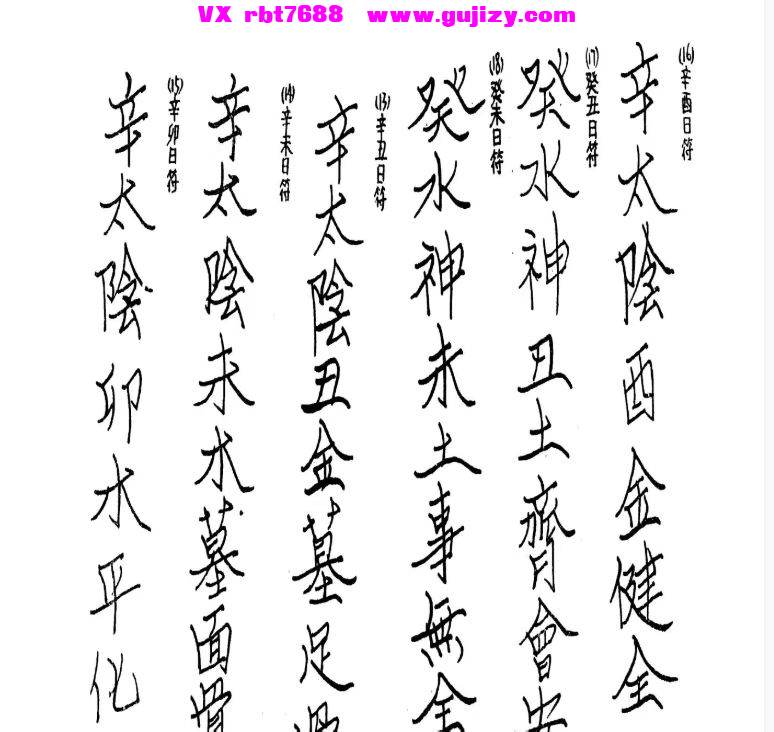 VX rbt7688 www.gujizy.com
(16)辛酉日符
辛太陰酉金健全
(17)癸丑日符
癸水神丑土齊會安
(18)癸未日符
癸水神未土事無全
(13)辛丑日符
辛太陰丑金墓足
(14)辛未日符
辛太陰未木墓面骨
(15)辛卯日符
辛太陰卯木平化